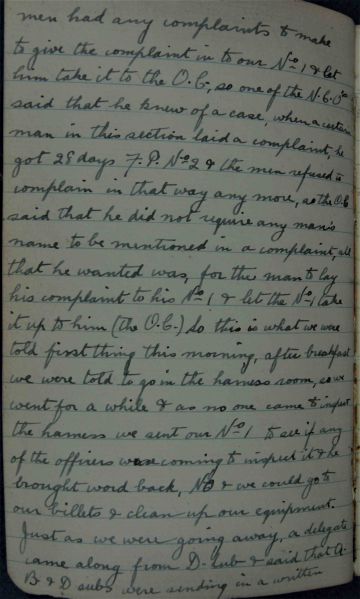 men had any complaints to make
to give the complaint in to our No 1 & let
him take it to the O.C, so one of the N.C.Os
said that he knew of a case, when a certain
man in this section laid a complaint, he
got 28 days F.P. No 2 & the men refused to
complain in that way any more, so the O.C
said that he did not require any man's
name to be mentioned in a complaint, all
that he wanted was, for the man to lay
his complaint to his No 1 & let the No 1 take
it up to him (the O.C.) so this is what we were
told first thing this morning, after breakfast
we were told to go in the harness room, so we
went for a while & as no one came to inspect
the harness we sent our No 1 to see if any
of the officers were coming to inspect it & he
brought word back, No & we could go to
our billets & clean up our equipment.
Just as we were going away, a delegate
came along from D-Sub & said that A-
B & D subs were sending in a written